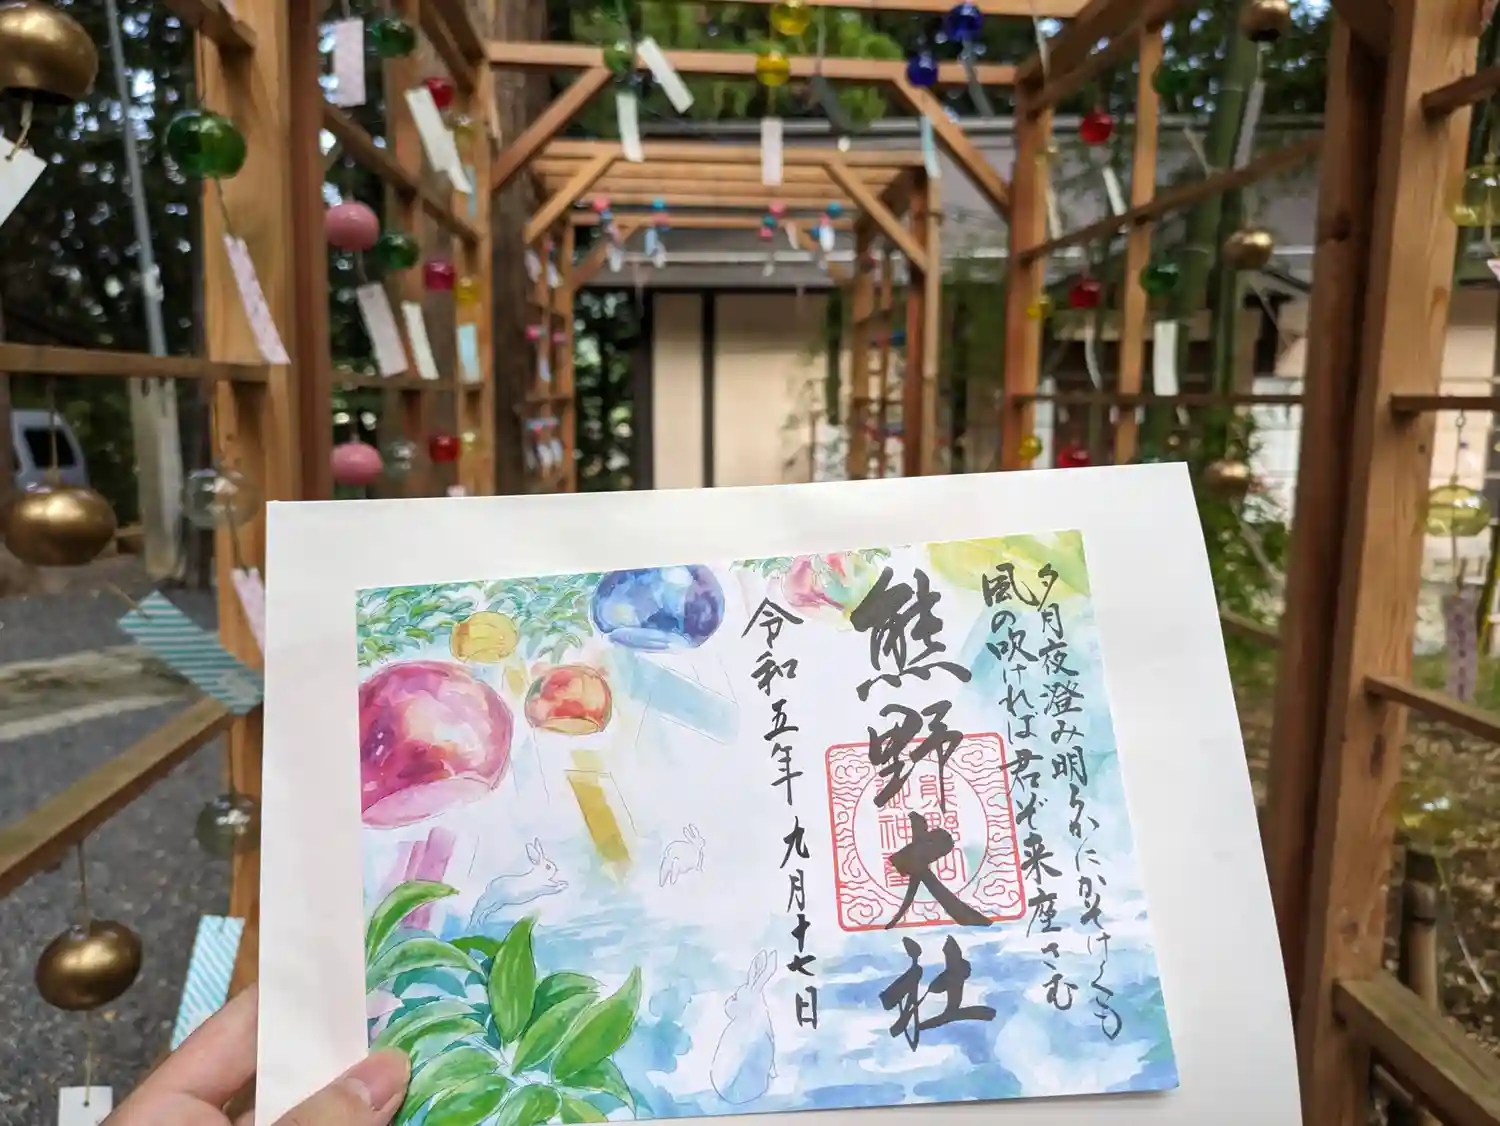 夕月夜澄み明らかにかそけくも
風の吹ければ君ぞ来座さむ
熊野大社
令和五年九月十七日